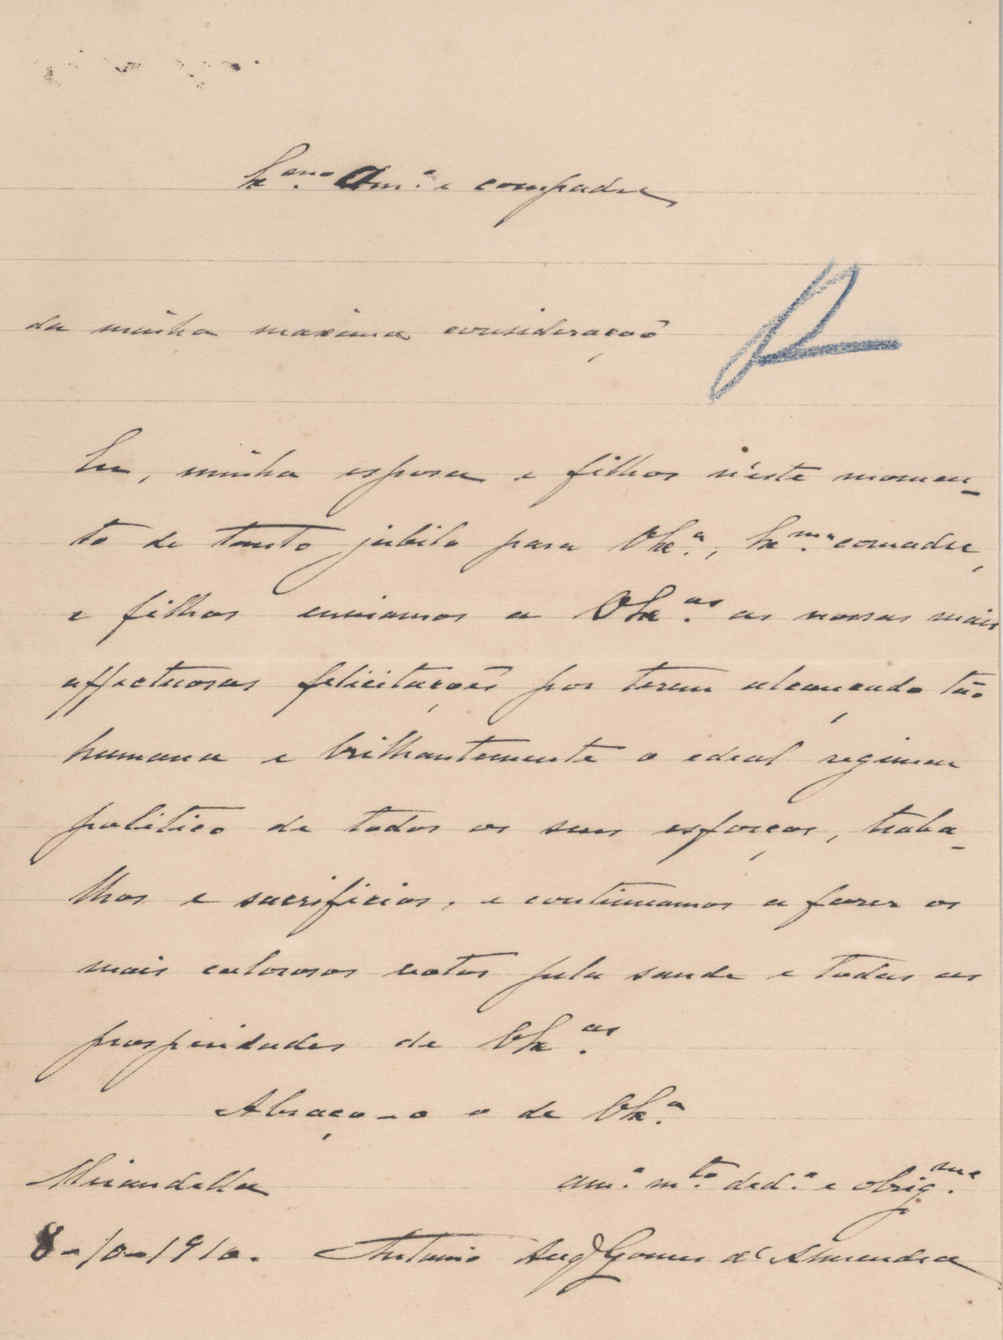 Ex.mo Am.o e compadre
da minha maxima consideração
R
Eu, minha esposa e filhos n'este momen-
to de tanto jubilo para VEx.a, Ex.ma comadre,
e filhos enviamos a VEx.as as nossas mais
affectuosas felicitações por terem alcançado tão
humana e brilhantemente o edeal regimen
politico de todos os seus esforços, traba-
lhos e sacrificios, e continuamos a fazer os
mais calorosos votos pela saude e todas as
prosperidades de VEx.as
Abraça-o o de VEx.a
Mirandella am.o m.to ded.o e obrig.mo
8-10-1910. Antonio Aug Gomes d'Almendra